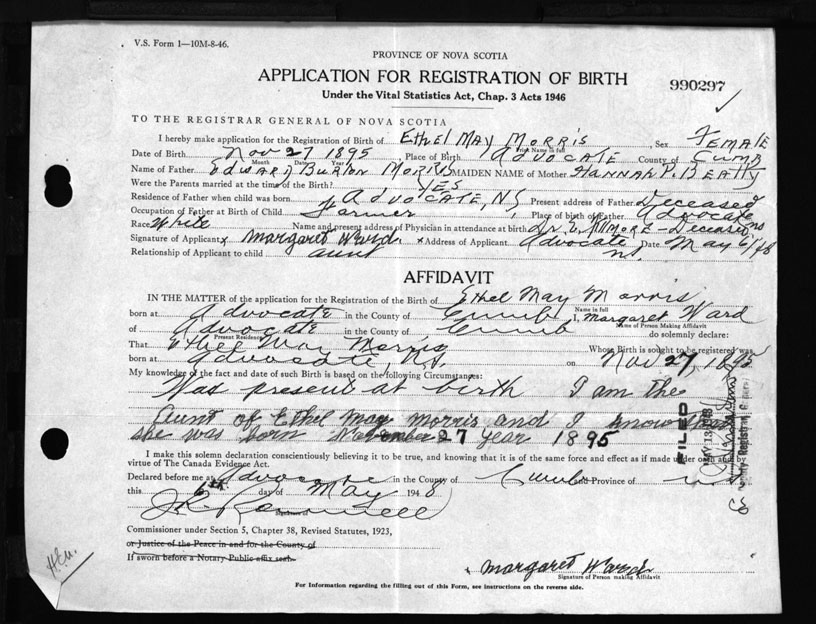 V.S. Form 1—10M-8-46.
PROVINCE OF NOVA SCOTIA
APPLICATION FOR REGISTRATION OF BIRTH
990297
Under the Vital Statistics Act, Chap. 3 Acts 1946
TO THE REGISTRAR GENERAL OF NOVA SCOTIA
I hereby make application for the Registration of Birth of Ethel May Morris Sex Female
Print Name in full
Date of Birth Nov 27 1895 Place of Birth Advocate County of Cumb
Month Date Year
Name of Father Edward Burton Morris MAIDEN NAME of Mother Hannah P. Beatty
Were the Parents married at the time of the Birth? Yes
Residence of Father when child was born Advocate, NS Present address of Father Deceased
Occupation of Father at Birth of Child Farmer Place of birth of Father Advocate NS
Race White Name and present address of Physician in attendance at birth Dr. E. Killmore - Deceased
Signature of Applicant x Margaret Ward. x Address of Applicant Advocate NS. Date May 6/48
Relationship of Applicant to child aunt
AFFIDAVIT
IN THE MATTER of the application for the Registration of the Birth of Ethel May Morris
Name in full
born at Advocate in the County of Cumb I, Margaret Ward
Name of Person Making Affidavit
of Advocate in the County of Cumb do solemnly declare:
Present Residence
That Ethel May Morris Whose Birth is sought to be registered was
born at Advocate, N.S. on Nov 27, 1895
My knowledge of the fact and date of such Birth is based on the following Circumstances:
Was present at birth I am the
Aunt of Ethel May Morris and I know that
she was born November 27 year 1895
FILED
MAY 13 1948
I make this solemn declaration conscientiously believing it to be true, and knowing that it is of the same force and effect as if made under oath and by
virtue of The Canada Evidence Act.
Declared before me at Advocate in the County of Cumb and Province of NS
this 6th day of May 1948
Signature of
Commissioner under Section 5, Chapter 38, Revised Statutes, 1923,
or Justice of the Peace in and for the County of
If sworn before a Notary Public affix seal.
x Margaret Ward.
Signature of Person making Affidavit
For Information regarding the filling out of this Form, see instructions on the reverse side.